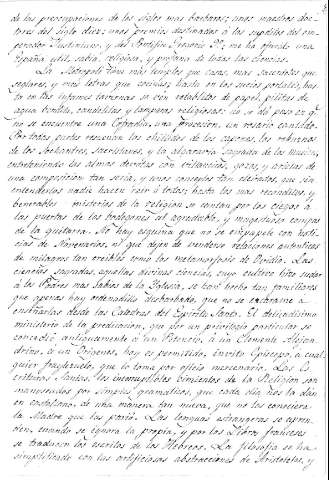 de las preocupaciones de los siglos mas barbaros; unos maestros doc-
tores del siglo diez; unos premios destinados a los subditos del em-
perador Justiniano, y del Pontifice Gregorio 7º, me ha ofrecido una
España util, sabia, religiosa, y profana de todas las ciencias.
La Metropoli tiene mas templos que casas, mas sacerdotes que
seglares, y mas aras que cocinas; hasta en los sucios portales, has-
ta en las infames tavernas se ven retablitos de papel, pilitas de
agua bendita, candelitas y lamparas religiosas: no se da paso en qe.
no se encuentre una Cofradia, una procesion, un rosario cantado.
Por todas partes resuenan los chillidos de los capones, los rebuznos
de los Sochantres, sacristanes, y la algaravia sagrada de los musicos,
entreteniendo las almas devotas con villancicos, gozos, y arietas de
una composicion tan seria, y unos conceptos tan elevados, que sin
entenderlos nadie hacen reir á todos; hasta los mas reconditos, y
venerables misterios de la religion se cantan por los ciegos a
las puertas de los bodegones al agradable, y magestuoso compas
de la guitarra. No hay esquina que no se empapele con noti-
cias de Novenarios, ni que dejen de venderse relaciones autenticas
de milagros tan creibles como las metamorfosis de Ovidio. Las
ciencias sagradas, aquellas divinas ciencias, cuyo cultivo hizo sudar
a los Padres mas sabios de la Iglesia, se han hecho tan familiares
que apenas hay ordenadillo desbarbado, que no se encarame a
enseñarlas desde las Catedras del Espiritu Santo. El delicadisimo
ministerio de la predicacion, que por un privilegio particular se
concedió antiguamente a un Panteno, á un Clemente Alejan-
drino, a un Origenes hoy es permitido, invito Episcopo, á cual-
quier frayleçuelo, que lo toma por oficio mercenario. Las Es-
crituras Santas, los incorruptibles cimientos de la Religion son
manoseadas por simples gramaticos, que cada dia nos la dan
en castellano, de una manera tan nueva, que no las conociera
la Madre que las parió. Las lenguas estrangeras se apren-
den, cuando se ignora la propia, y por los libros franceses
se traducen los escritos de los Hebreos. La filosofia se ha
simplificado con las artificiosas abstracciones de Aristoteles, y